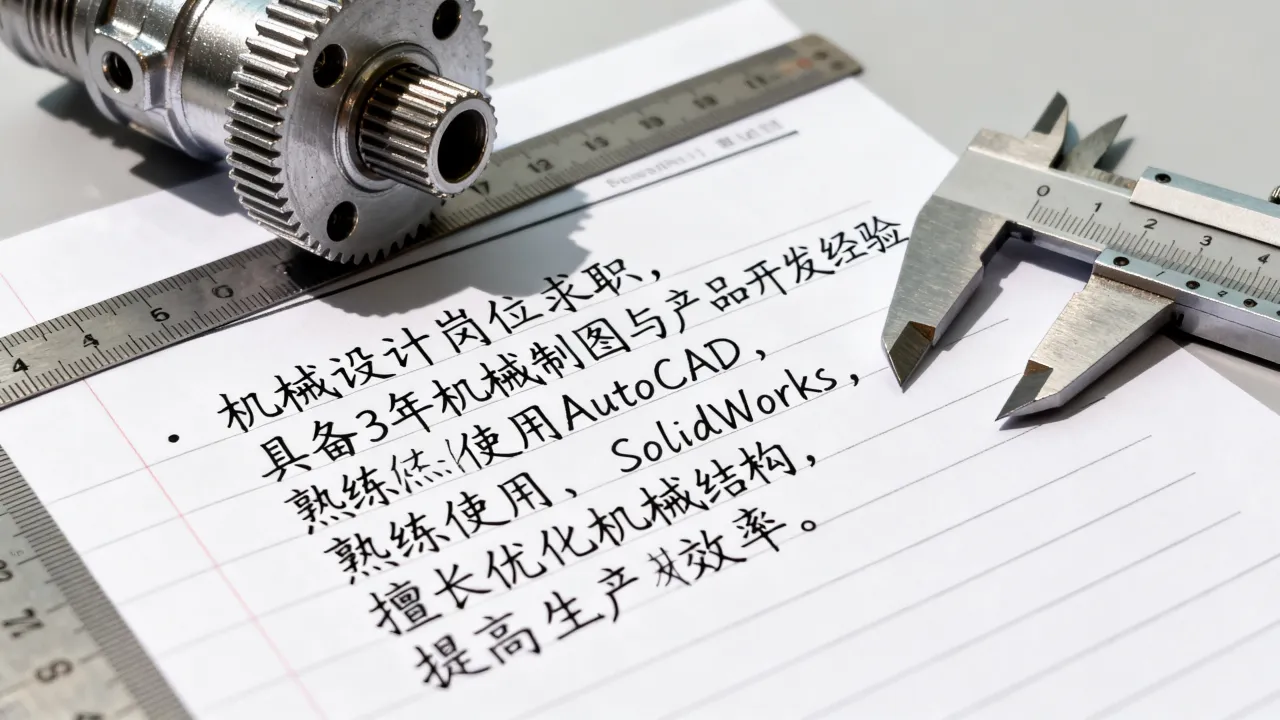 机械设计岗位求职，
具备3年机械制图与产品开发经验
熟练使用AutoCAD，
熟练使用、SolidWorks，
擅长优化机械结构，
提高生产效率。
0 1 2 3 4